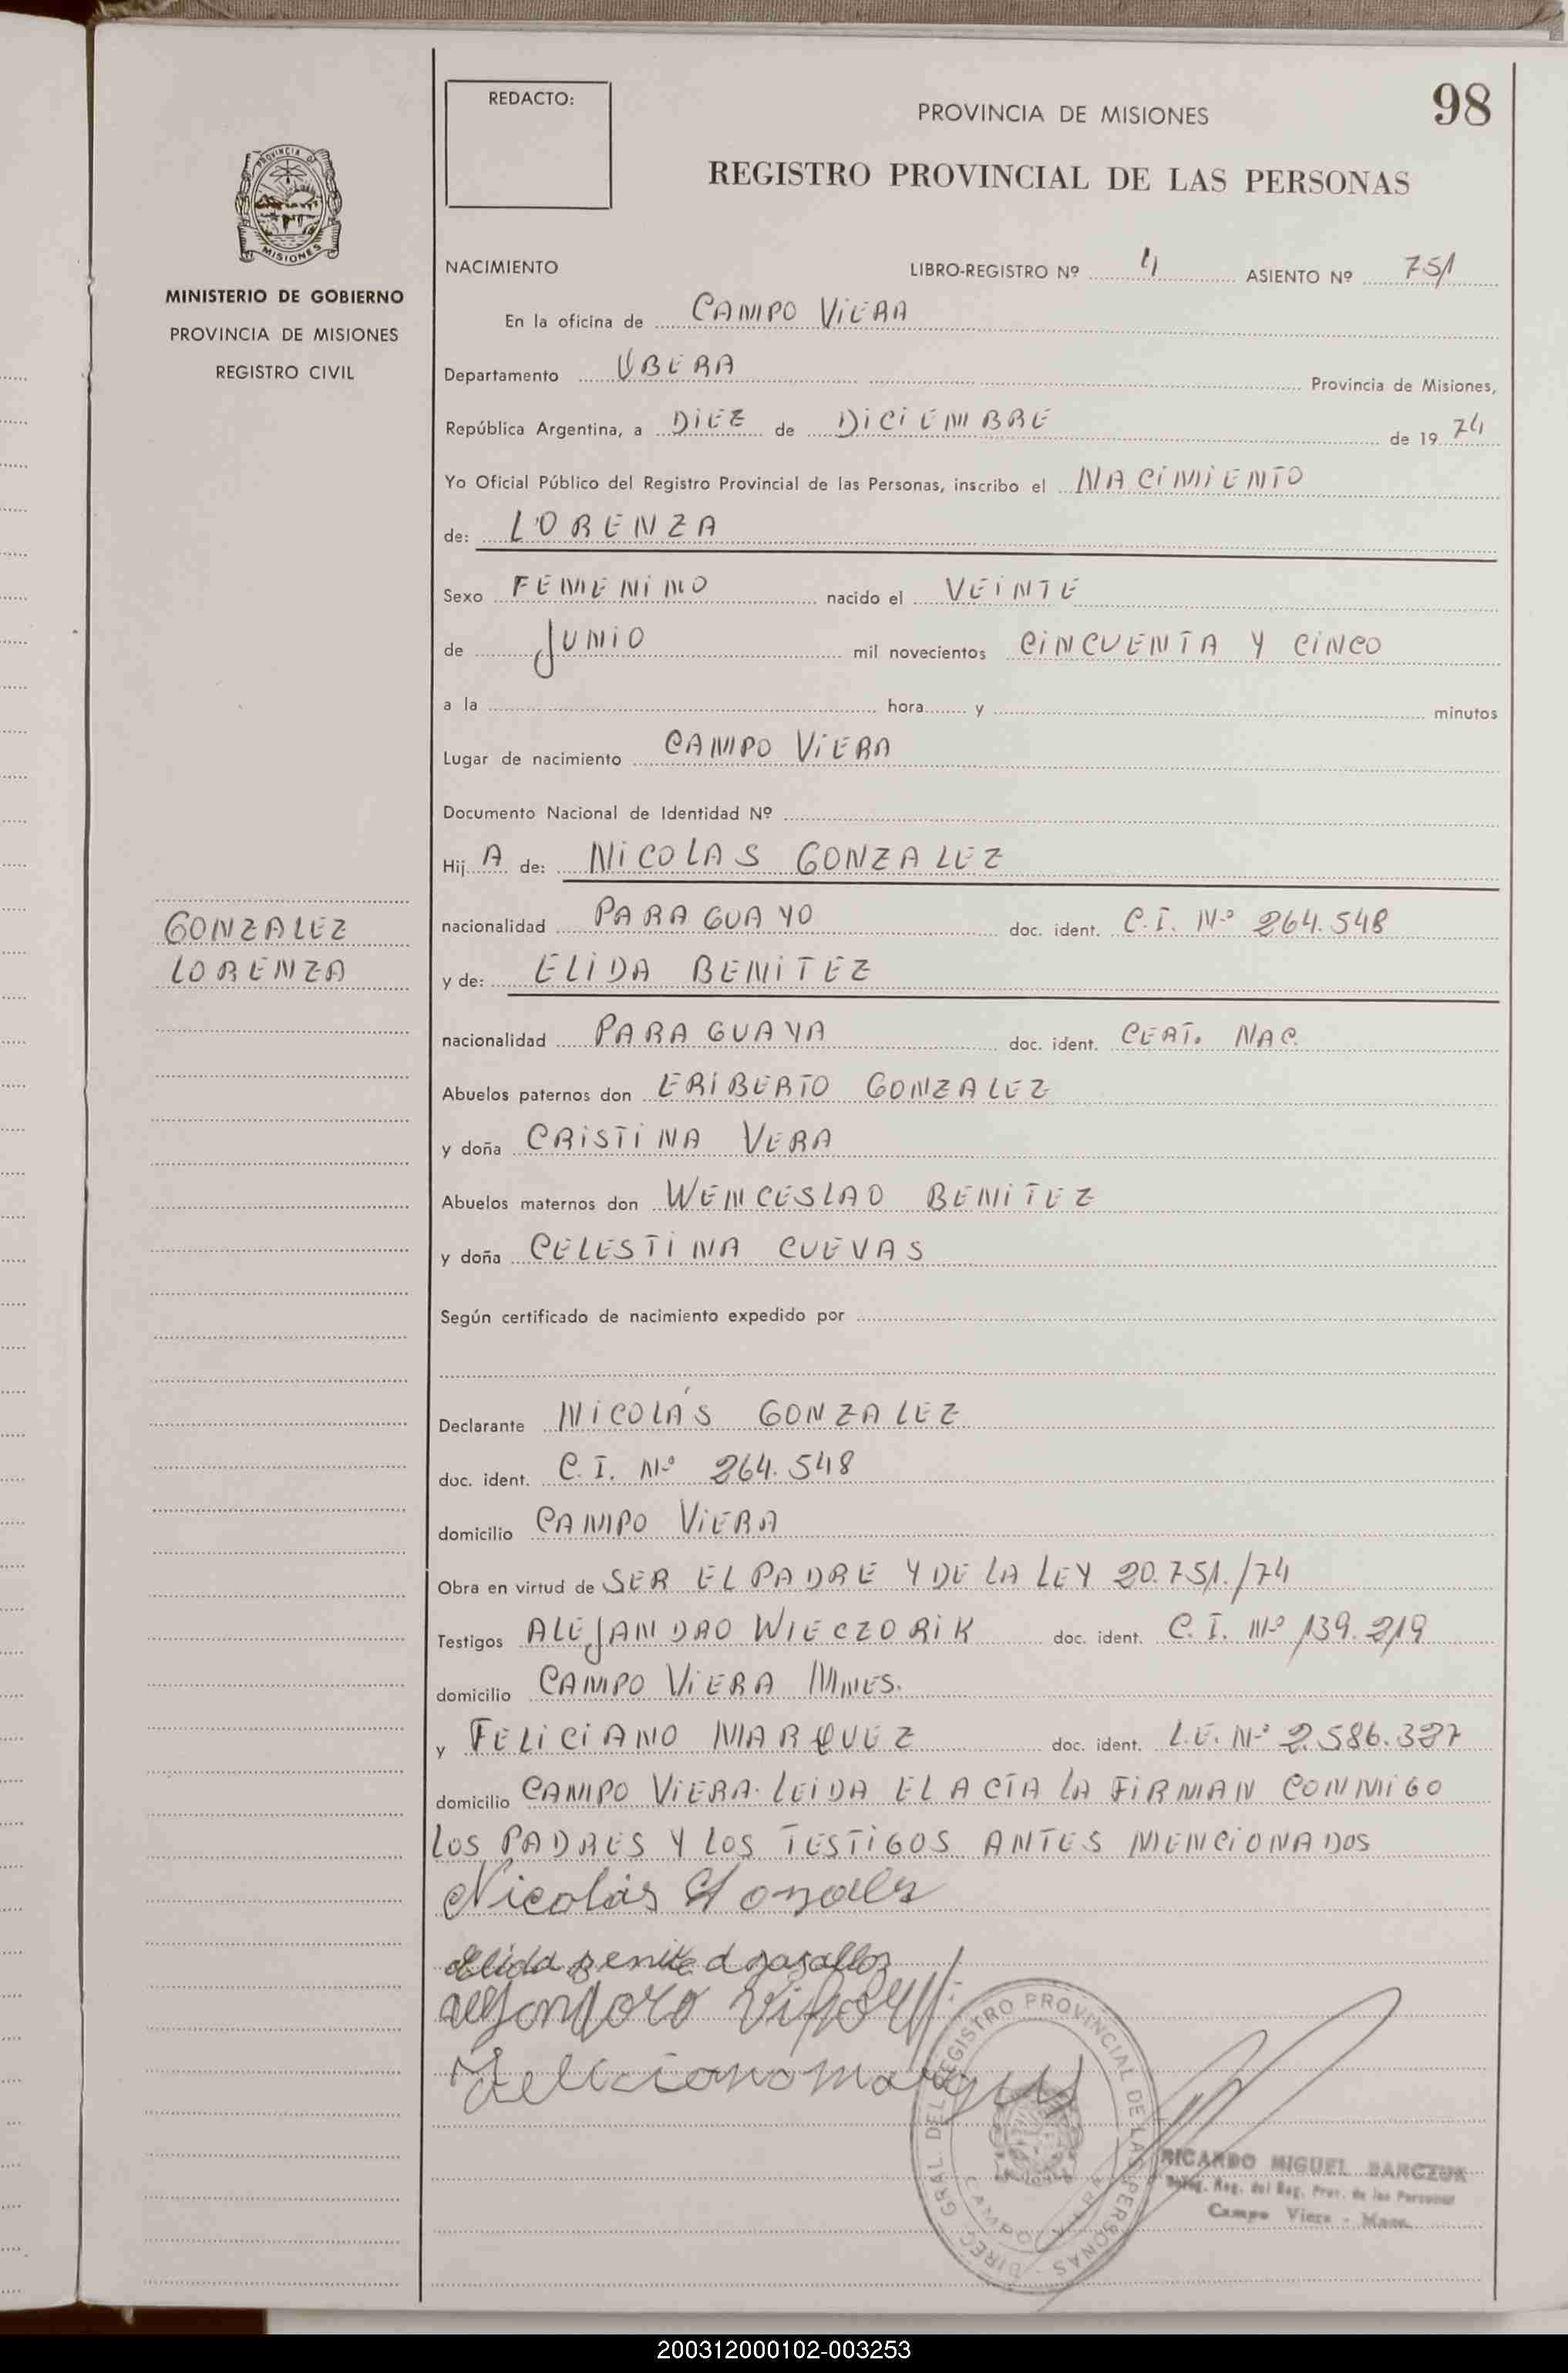 98
REDACTO:
PROVINCIA DE MISIONES
REGISTRO PROVINCIAL DE LAS PERSONAS
PROVINCIA DE
MISIONES
MINISTERIO DE GOBIERNO
PROVINCIA DE MISIONES
REGISTRO CIVIL
NACIMIENTO LIBRO-REGISTRO Nº 4 ASIENTO Nº 751
En la oficina de CAMPO VIERA
Departamento OBERA Provincia de Misiones,
República Argentina, a DIEZ de DICIEMBRE de 19 74
Yo Oficial Público del Registro Provincial de las Personas, inscribo el NACIMIENTO
de: LORENZA
Sexo FEMENINO nacido el VEINTE
de JUNIO mil novecientos CINCUENTA Y CINCO
a la hora y minutos
Lugar de nacimiento CAMPO VIERA
Documento Nacional de Identidad Nº
Hij A de: NICOLAS GONZALEZ
GONZALEZ
LORENZA
nacionalidad PARAGUAYO doc. ident. C.I. Nº 264.548
y de: ELIDA BENITEZ
nacionalidad PARAGUAYA doc. ident. CERT. NAC.
Abuelos paternos don ERIBERTO GONZALEZ
y doña CRISTINA VERA
Abuelos maternos don WENCESLAO BENITEZ
y doña CELESTINA CUEVAS
Según certificado de nacimiento expedido por
Declarante NICOLÁS GONZALEZ
doc. ident. C.I. Nº 264.548
domicilio CAMPO VIERA
Obra en virtud de SER EL PADRE Y DE LA LEY 20.751./74
Testigos ALEJANDRO WIECZORIK doc. ident. C.I. Nº 139.219
domicilio CAMPO VIERA MNES.
y FELICIANO MARQUEZ doc. ident. L.E. Nº 2.586.327
domicilio CAMPO VIERA. LEIDA EL ACTA LA FIRMAN CONMIGO
LOS PADRES Y LOS TESTIGOS ANTES MENCIONADOS
Nicolás Gonzalez
Elida Benite d
Feliciano Marques
DIREC. GRAL. DEL REGISTRO PROVINCIAL DE LAS PERSONAS
CAMPO VIERA
RICARDO MIGUEL BARCZUK
Deleg. Reg. del Reg. Prov. de las Personas
Campo Viera - Mnes.
200312000102-003253